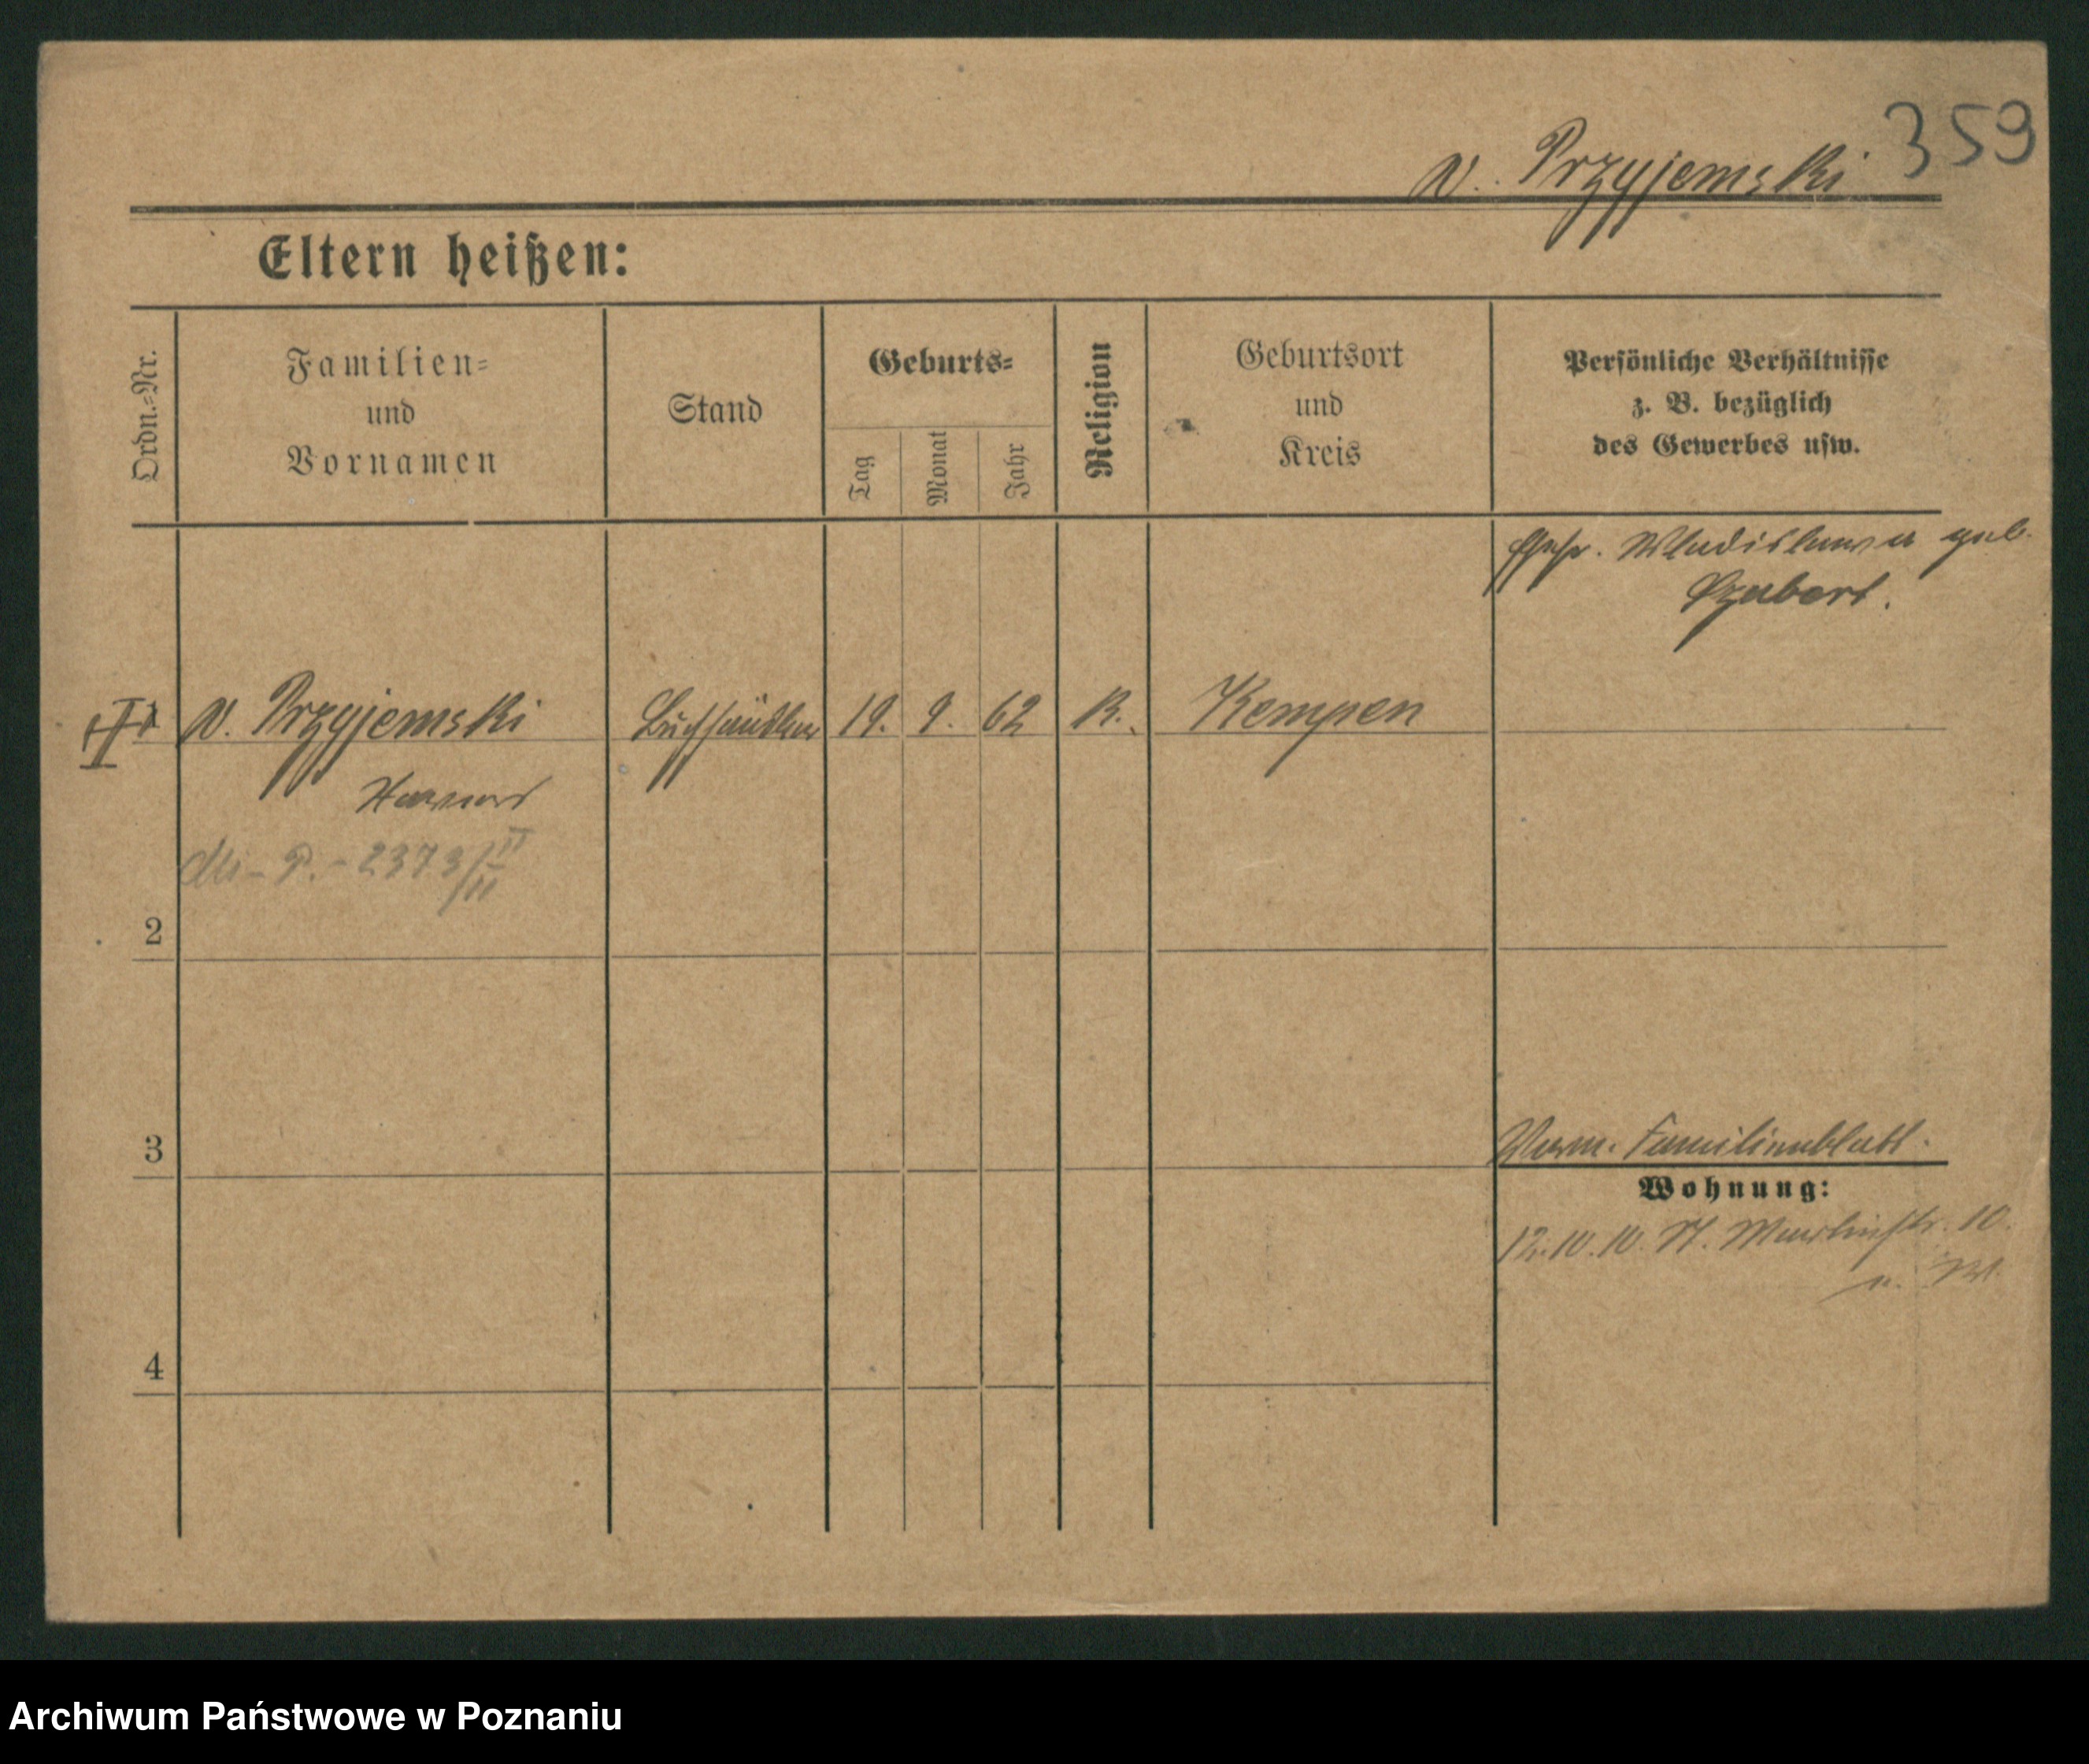 359
v. Przyjemski
Eltern heißen:
Ordn.-Nr.
Familien-
und
Vornamen
Stand
Geburts-
Tag
Monat
Jahr
Religion
Geburtsort
und
Kreis
Persönliche Verhältnisse
z. B. bezüglich
des Gewerbes usw.
Ehefr. Wladislawa geb.
v. Przyjemski
Buchhändler
19. 9. 62
K.
Kempen
2373/
2
3
Verm. Familienblatt.
Wohnung:
12.10.10. Martinstr. 10.
4
Archiwum Państwowe w Poznaniu